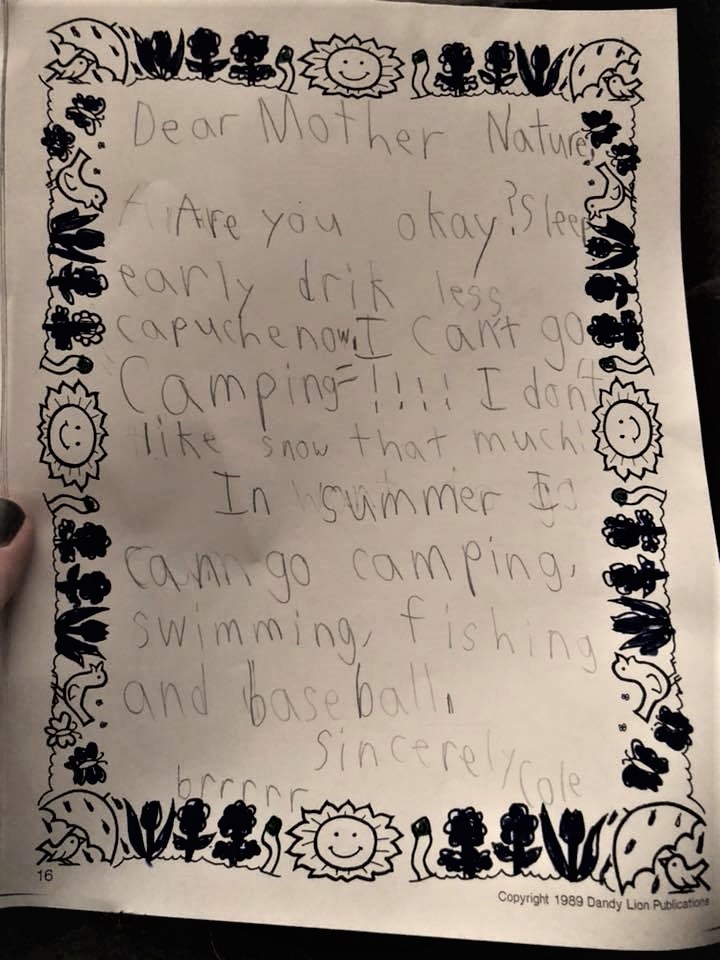 Dear Mother Nature,
Are you okay? Sleep
early drik less
capuchenow. I can't go
Camping !!!! I don't
like snow that much!
In summer I
cann go camping,
swimming, fishing
and baseball.
Sincerely Cole
brrrrr
16
Copyright 1989 Dandy Lion Publications